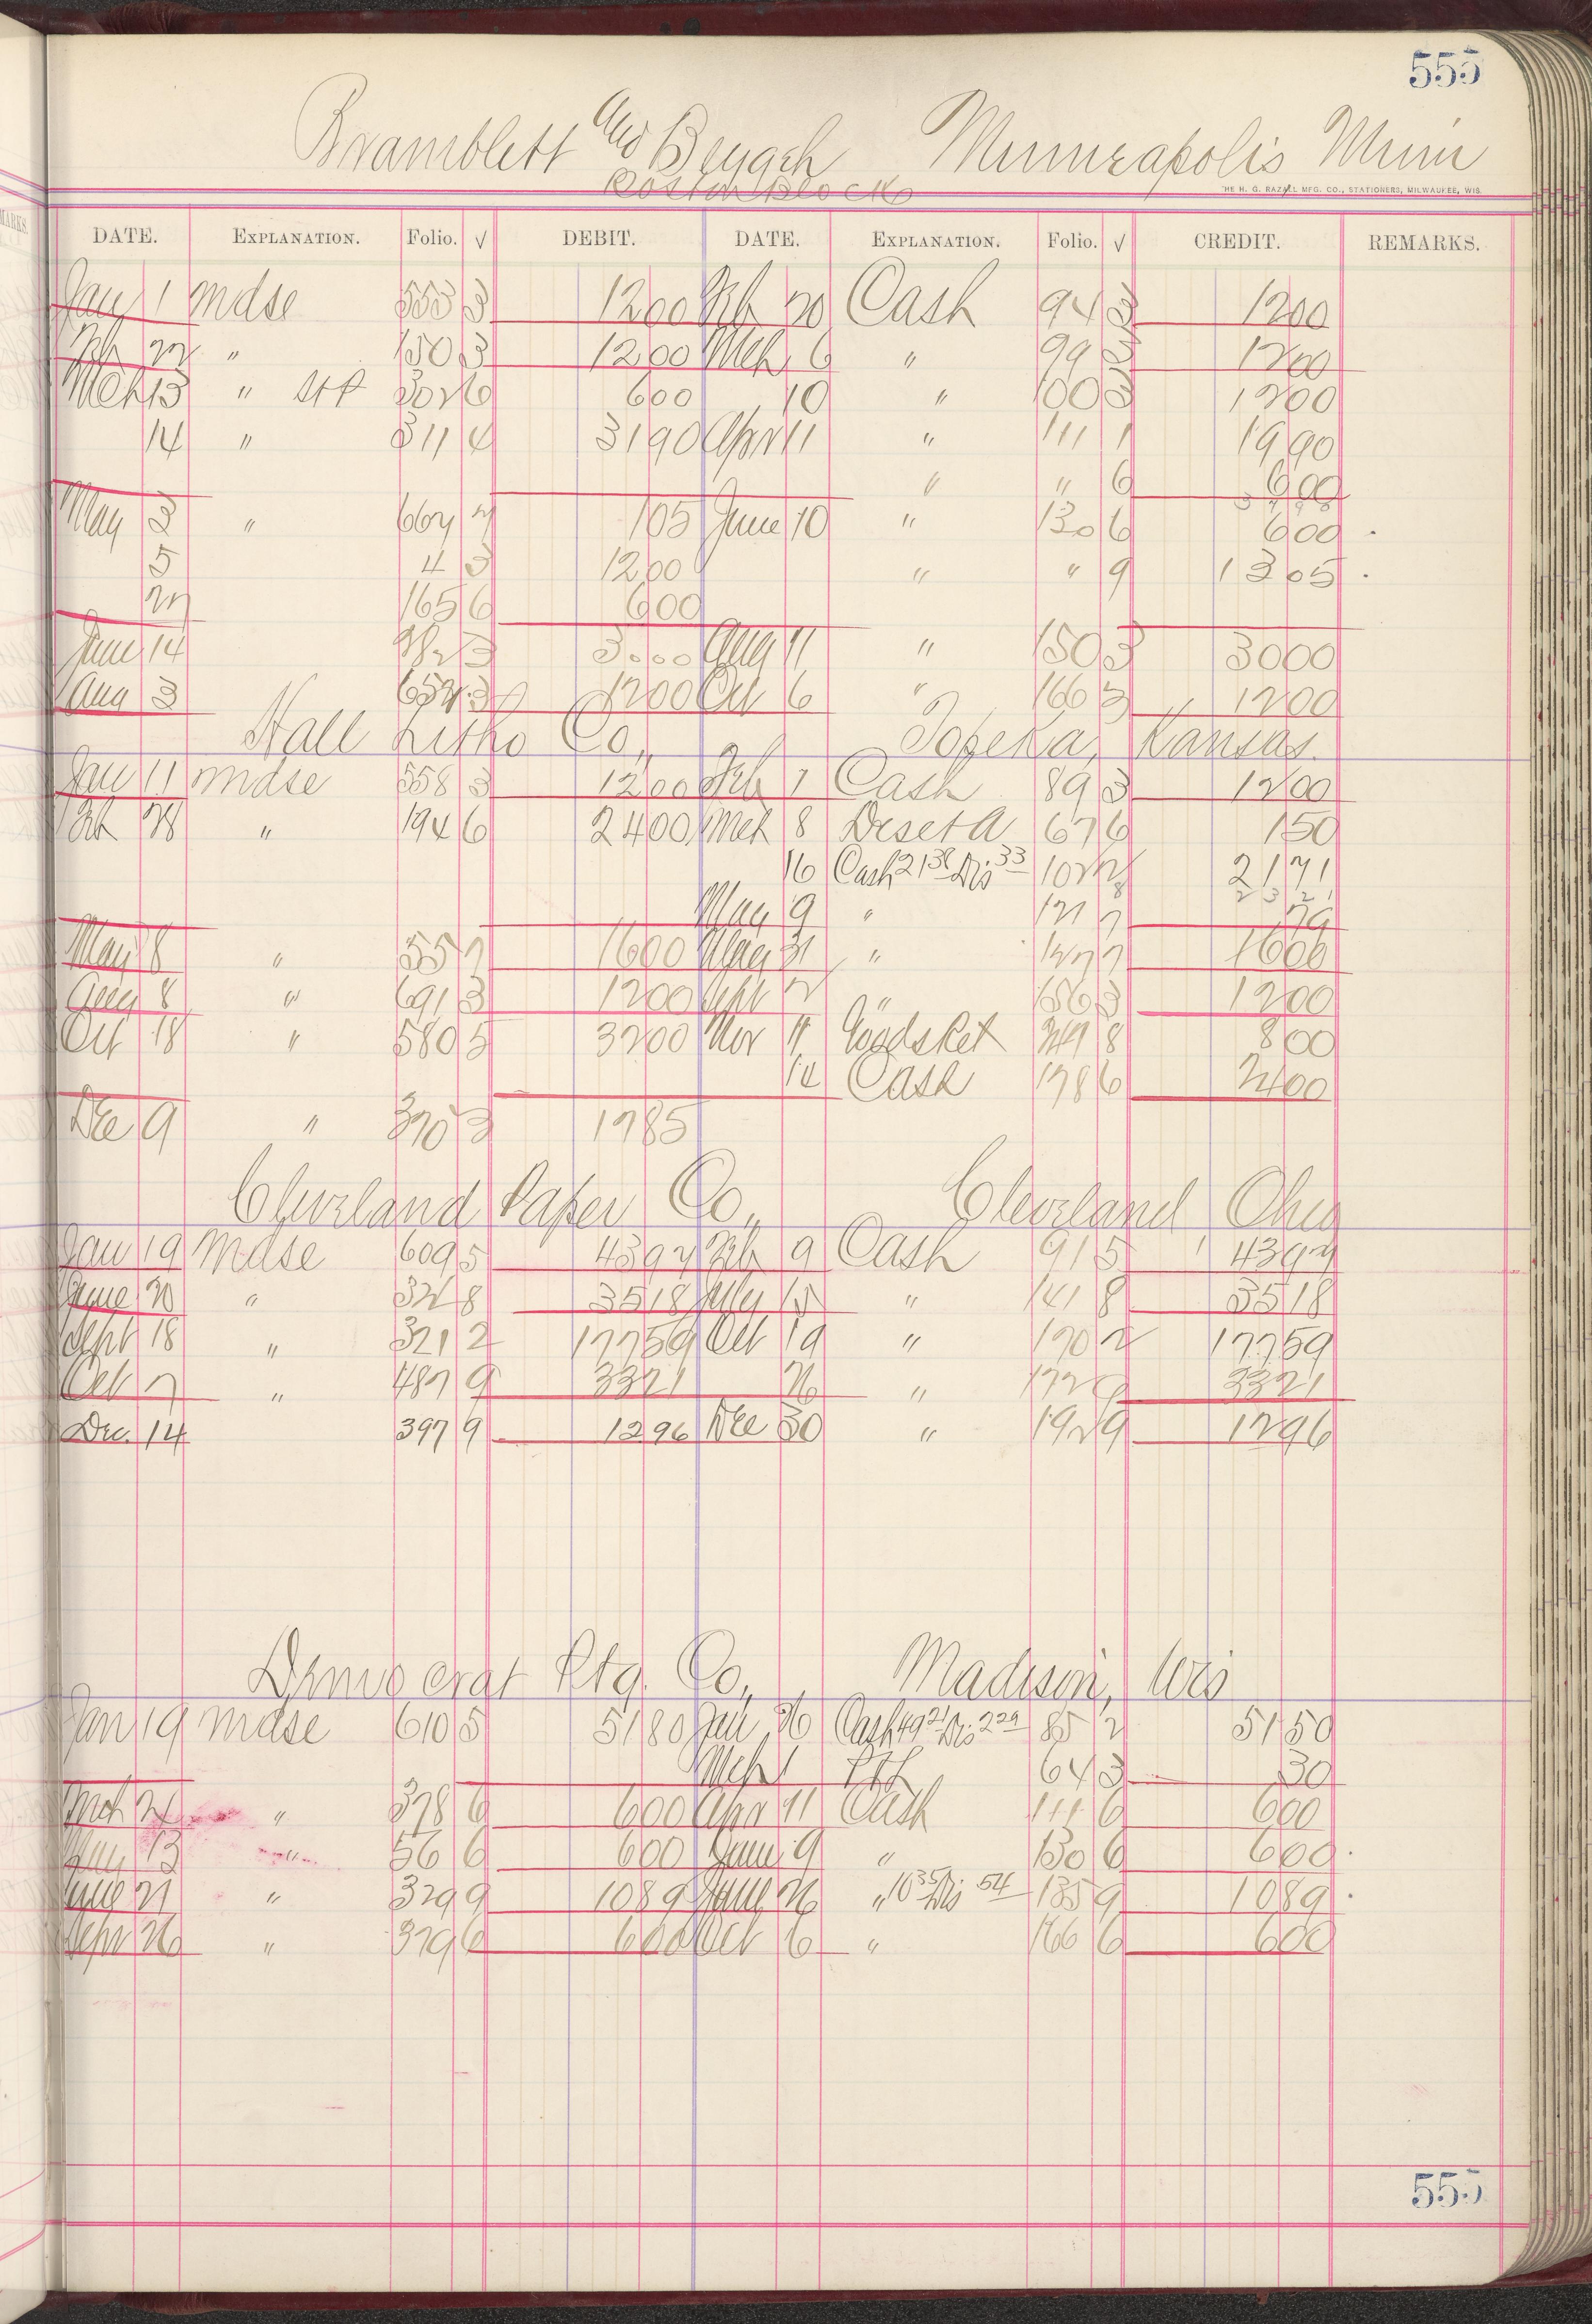 555
Bramblett and Beygeh Minneapolis Minn
Boston Block
THE H. G. RAZALL MFG. CO., STATIONERS, MILWAUKEE, WIS.
DATE. EXPLANATION. Folio. √ DEBIT. DATE. EXPLANATION. Folio. √ CREDIT. REMARKS.
Jan 1 Mdse 553 3 1200 Feb 20 Cash 94 3 1200
Feb 22 " 150 3 1200 Mch 6 " 99 3 1200
Mch 13 " 302 6 600 10 " 100 3 1200
14 " 311 4 3190 Apr 11 " 111 1 1990
" " 6 600
May 3 " 664 7 105 June 10 " 130 6 600
5 4 3 1200 " " 9 1305
27 165 6 600
June 14 3 3000 Aug 11 " 150 3 3000
Aug 3 654 3 1200 Oct 6 " 166 3 1200
Hall Litho Co., Topeka, Kansas.
Jan 11 Mdse 558 3 1200 Feb 1 Cash 89 3 1200
Feb 28 " 194 6 2400 Mch 8 Deset A 67 6 150
16 Cash 21 38 Dis 33 102 2171
May 9 " 121 7 79
May 8 " 55 7 1600 May 31 " 127 7 1600
Aug 8 " 691 3 1200 Sept 2 " 156 3 1200
Oct 18 " 580 5 3200 Nov 11 Goods Ret 249 8 800
14 Cash 178 6 2400
Dec 9 " 370 3 1785
Cleveland Paper Co., Cleveland Ohio
Jan 19 Mdse 609 5 4397 Feb 9 Cash 91 5 4397
June 20 " 324 8 3518 July 15 " 141 8 3518
Sept 18 " 321 2 17759 Oct 19 " 170 2 17759
Oct 7 " 487 9 3321 26 " 172 9 3321
Dec. 14 397 9 1296 Dec 30 " 192 9 1296
Democrat Ptg. Co., Madison, Wis
Jan 19 Mdse 610 5 5180 Jan 26 Cash 49 21 Dis 2 29 85 2 5150
Mch 1 64 3 30
Mch 21 " 378 6 600 Apr 11 Cash 111 6 600
May 13 " 56 6 600 June 9 " 130 6 600
June 21 " 329 9 1089 June 26 " 10 35 Dis 54 135 9 1089
Sept 26 " 379 6 600 Oct 6 " 166 6 600
555